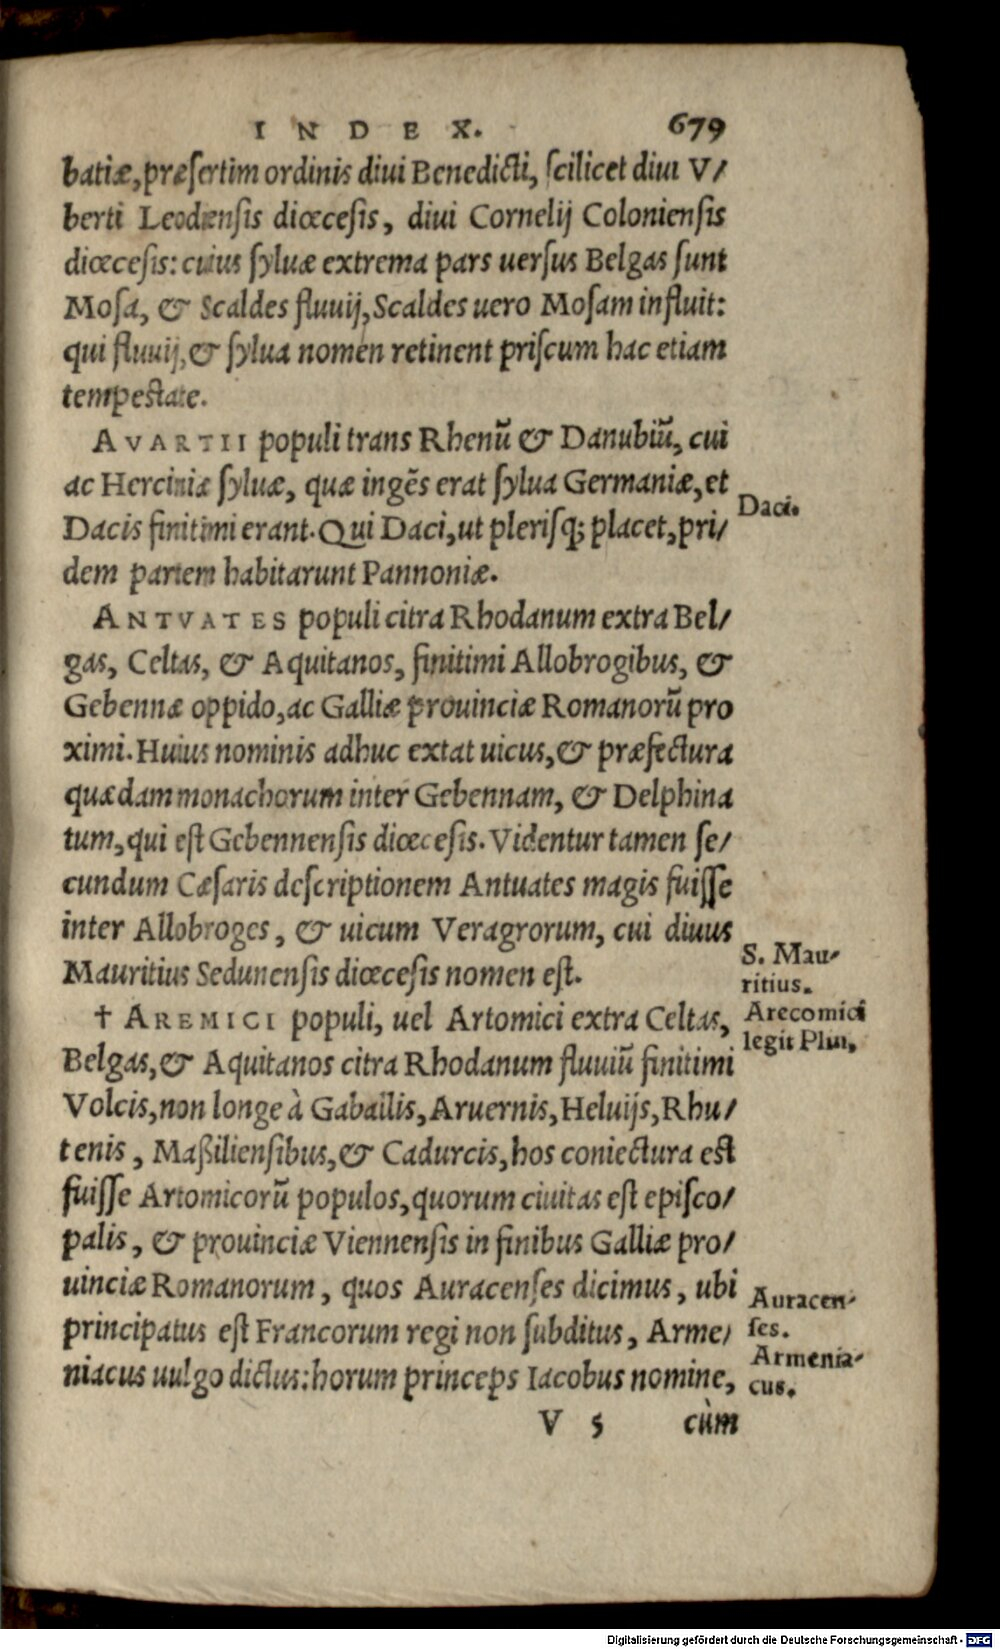 INDEX. 679
batiæ, præsertim ordinis diui Benedicti, scilicet diui V/
berti Leodiensis diœcesis, diui Cornelij Coloniensis
diœcesis: cuius syluæ extrema pars uersus Belgas sunt
Mosa, & Scaldes fluuij, Scaldes uero Mosam influit:
qui fluuij, & sylua nomen retinent priscum hac etiam
tempestate.
AVARTII populi trans Rhenū & Danubiū, cui
ac Herciniæ syluæ, quæ ingēs erat sylua Germaniæ, et
Dacis finitimi erant. Qui Daci, ut plerisq; placet, pri/
dem partem habitarunt Pannoniæ.
Daci.
ANTVATES populi citra Rhodanum extra Bel/
gas, Celtas, & Aquitanos, finitimi Allobrogibus, &
Gebennæ oppido, ac Galliæ prouinciæ Romanorū pro
ximi. Huius nominis adhuc extat uicus, & præfectura
quædam monachorum inter Gebennam, & Delphina
tum, qui est Gebennensis diœcesis. Videntur tamen se/
cundum Cæsaris descriptionem Antuates magis fuisse
inter Allobroges, & uicum Veragrorum, cui diuus
Mauritius Sedunensis diœcesis nomen est.
S. Mau-
ritius.
† AREMICI populi, uel Artomici extra Celtas,
Belgas, & Aquitanos citra Rhodanum fluuiū finitimi
Volcis, non longe à Gabailis, Aruernis, Heluijs, Rhu/
tenis, Maßiliensibus, & Cadurcis, hos coniectura est
fuisse Artomicorū populos, quorum ciuitas est episco/
palis, & prouinciæ Viennensis in finibus Galliæ pro/
uinciæ Romanorum, quos Auracenses dicimus, ubi
principatus est Francorum regi non subditus, Arme/
niacus uulgo dictus: horum princeps Iacobus nomine,
Arecomici
legit Plin.
Auracen-
ses.
Armenia-
cus.
V 5 cùm
Digitalisierung gefördert durch die Deutsche Forschungsgemeinschaft - DFG